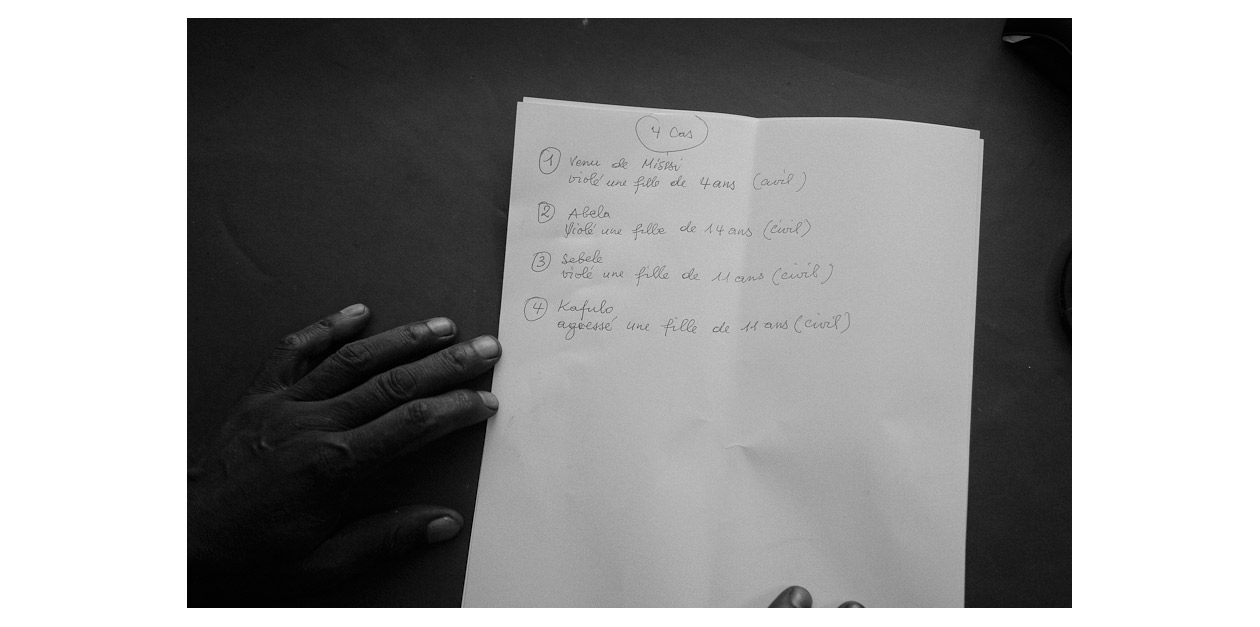 4 Cas
1 Venu de Misisi
violé une fille de 4 ans (civil)
2 Abela
Violé une fille de 14 ans (civil)
3 Sebele
violé une fille de 11 ans (civil)
4 Kafulo
agressé une fille de 11 ans (civil)